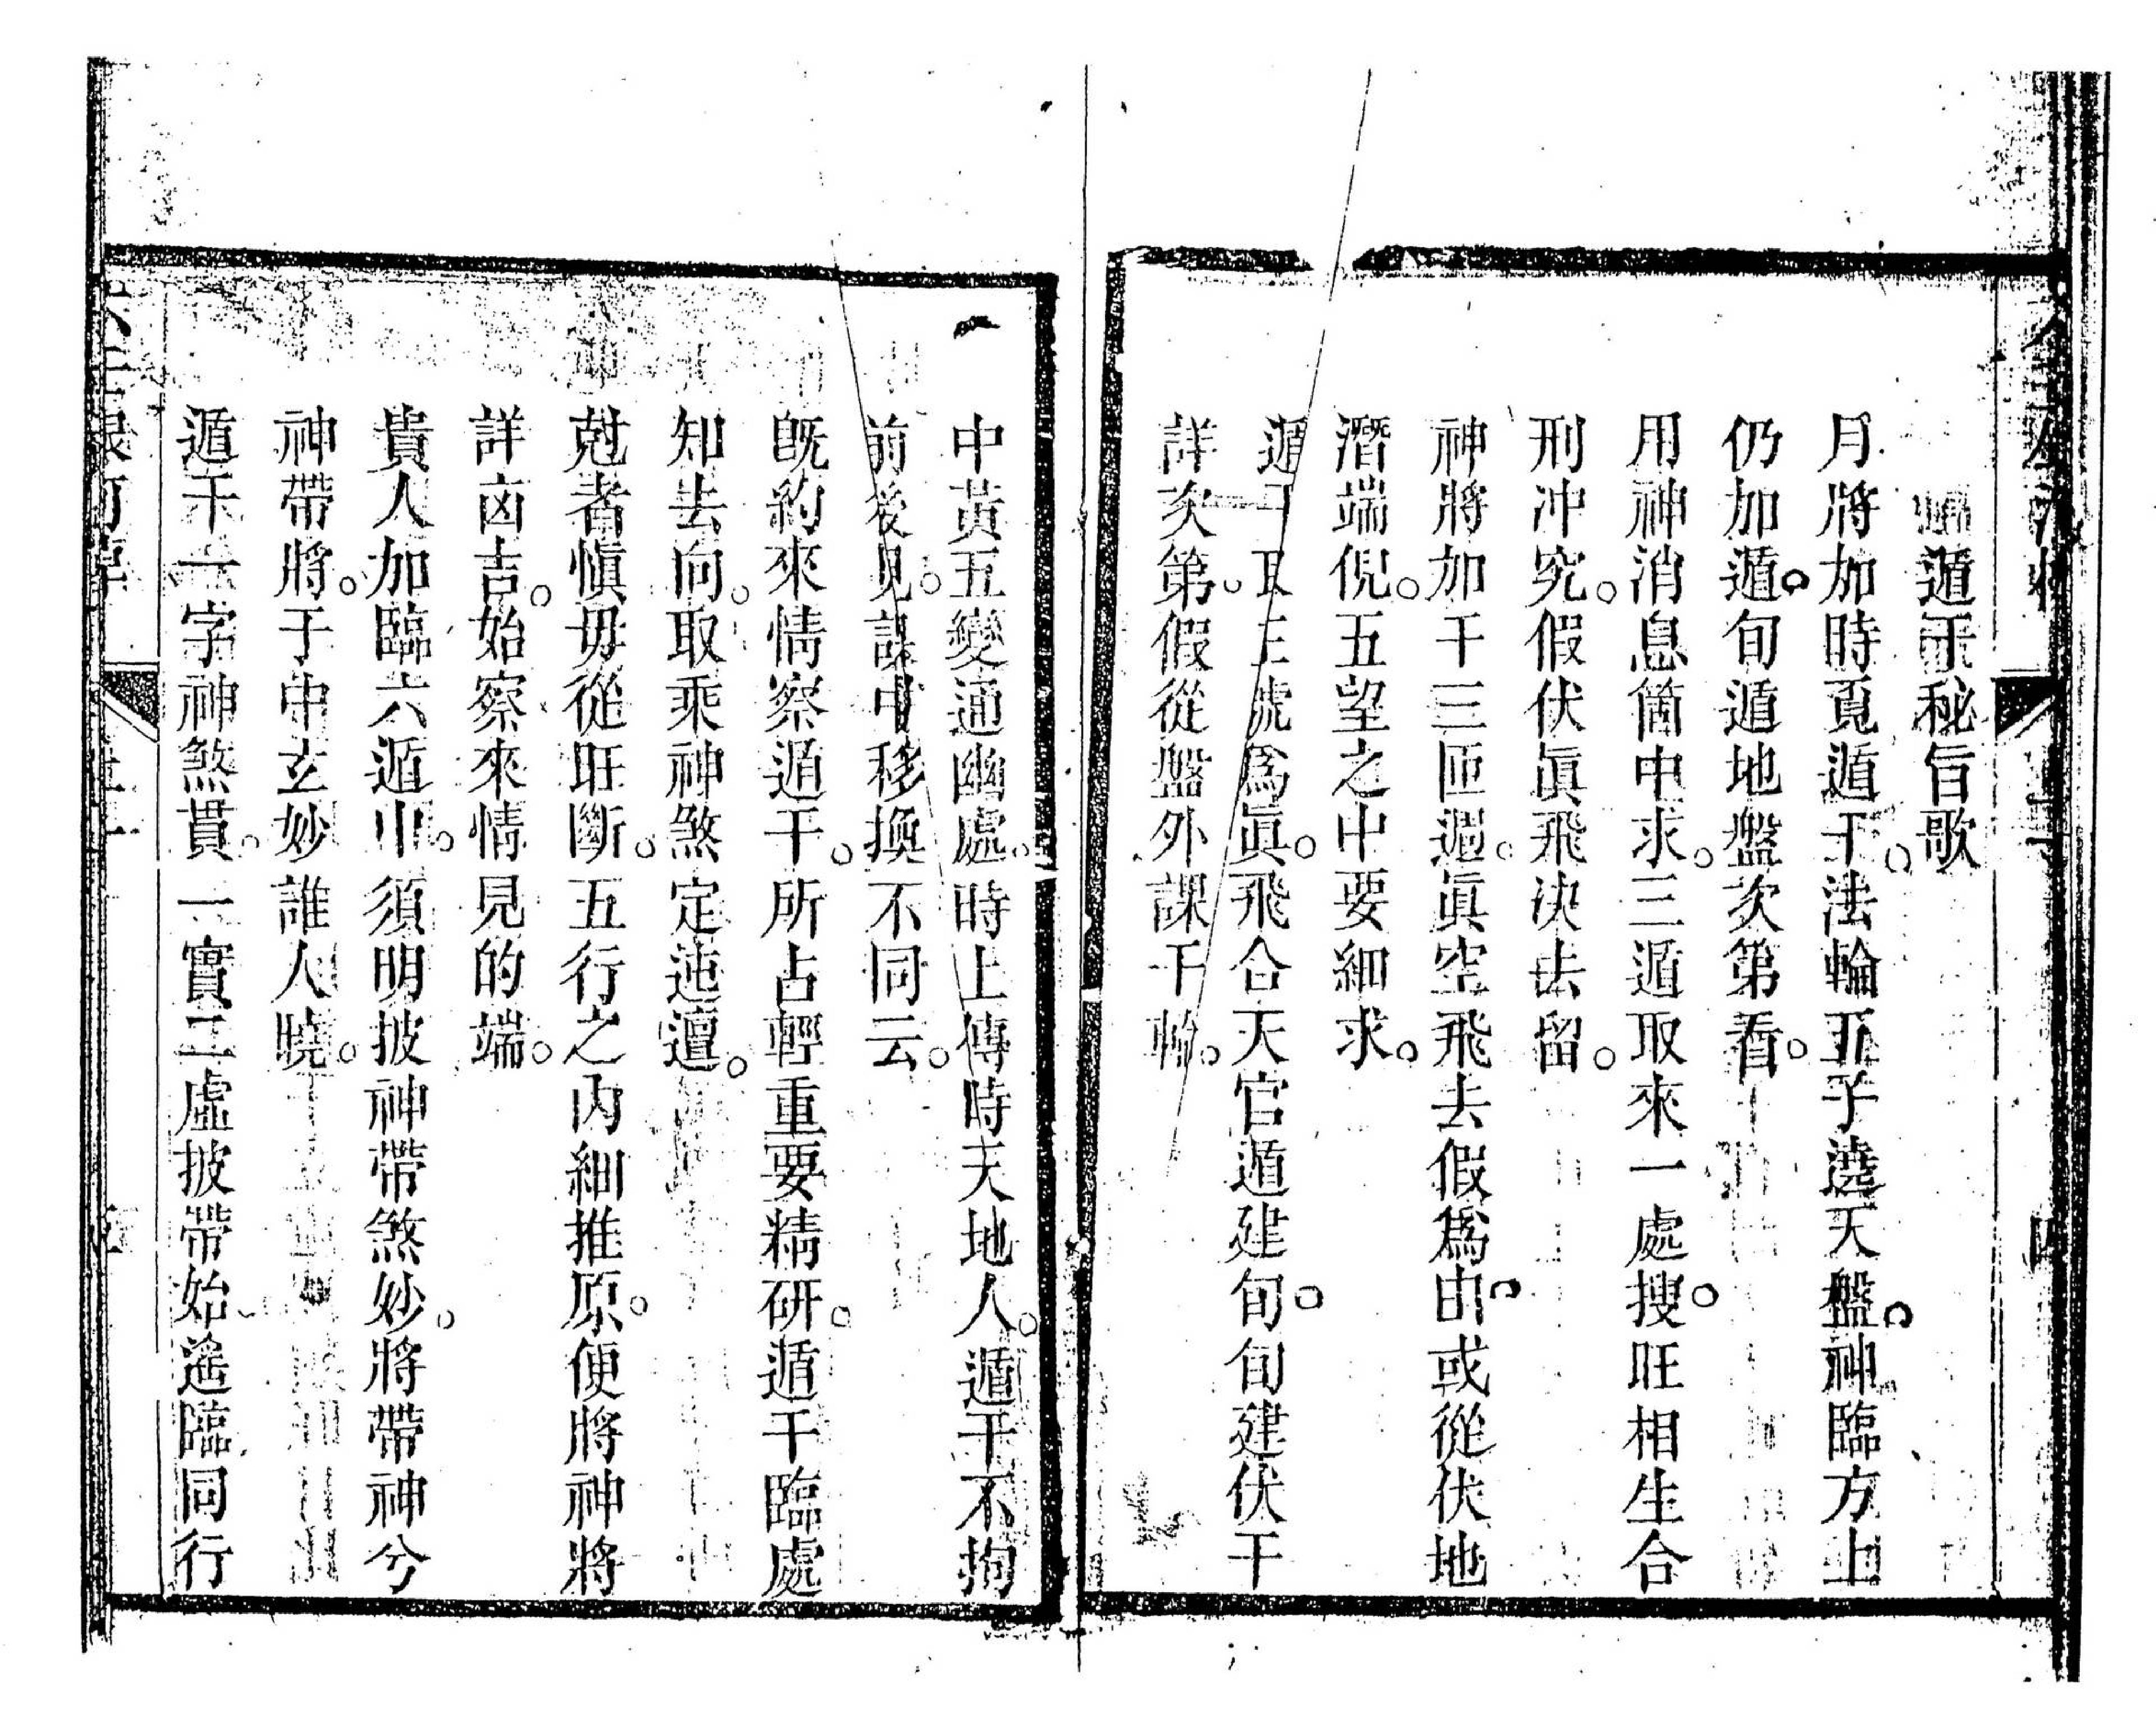 遁干秘旨歌
月將加時覓遁干。法輪五子遶天盤。神臨方上
仍加遁。旬遁地盤次第看。
用神消息箇中求。三遁取來一處搜。旺相生合
刑冲究。假伏眞飛決去留。
神將加干三匝遁。眞空飛去假爲由。或從伏地
潛端倪。五望之中要細求。
遁干取三號爲眞。飛合天官遁建旬。旬建伏干
詳次第。假從盤外課干輪。
中黃五變通幽處。時上傳時天地人。遁干不拘
前後見。課中移換不同云。
旣約來情察遁干。所占輕重要精研。遁干臨處
知去向。取乘神煞定迍邅。
尅者愼毋從旺斷。五行之內細推原。便將神將
詳凶吉。始察來情見的端。
貴人加臨六遁中。須明披神帶煞妙。將帶神兮
神帶將。于中玄妙誰人曉。
遁干一字神煞貫。一實二虛披帶始遙臨同行